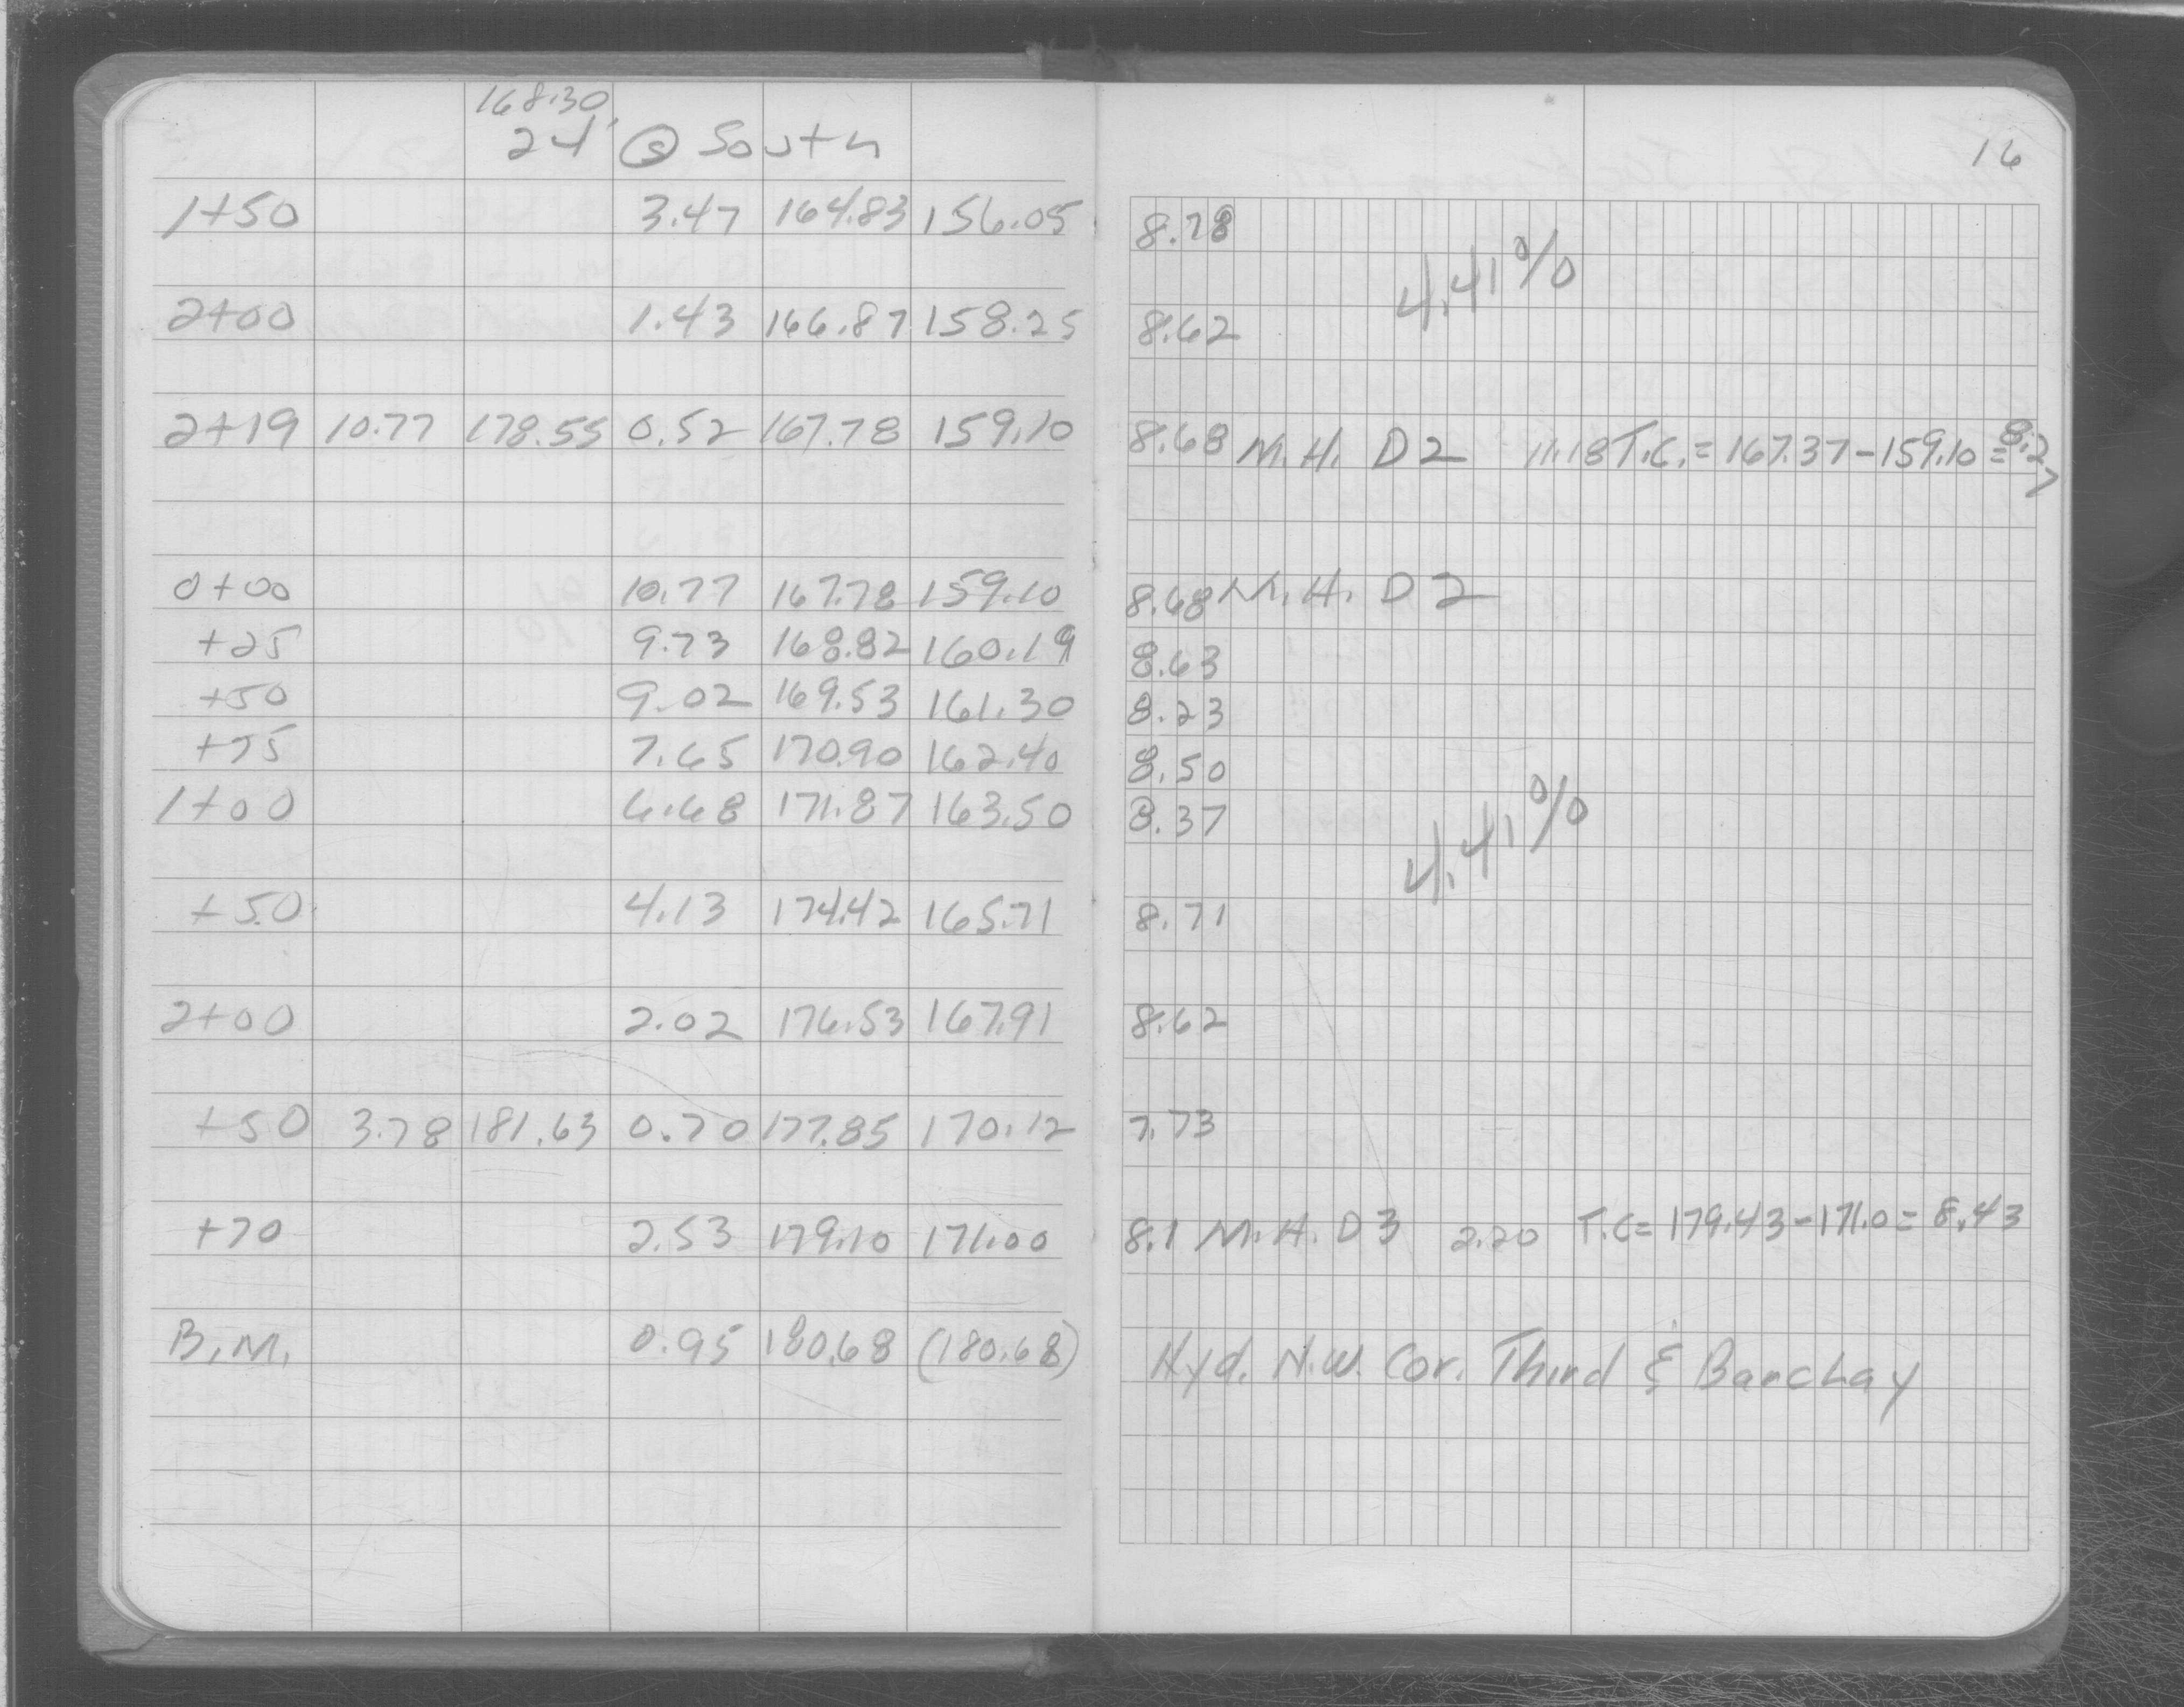 168.30
24' @ South
16
1+50 3.47 164.83 156.05 8.78
4.41%
2+00 1.43 166.87 158.25 8.62
2+19 10.77 178.55 0.52 167.78 159.10 8.68 M.H. D2 11.18 T.C. = 167.37-159.10 = 8.27
0+00 10.77 167.78 159.10 8.68 M.H. D2
+25 9.73 168.82 160.19 8.63
+50 9.02 169.53 161.30 8.23
+75 7.65 170.90 162.40 8.50
1+00 6.68 171.87 163.50 8.37
4.41%
+50 4.13 174.42 165.71 8.71
2+00 2.02 176.53 167.91 8.62
+50 3.78 181.63 0.70 177.85 170.12 7.73
+70 2.53 179.10 171.00 8.1 M.H. D3 2.20 T.C = 179.43-171.0 = 8.43
B.M. 0.95 180.68 (180.68) Hyd. N.W. Cor. Third & Barclay